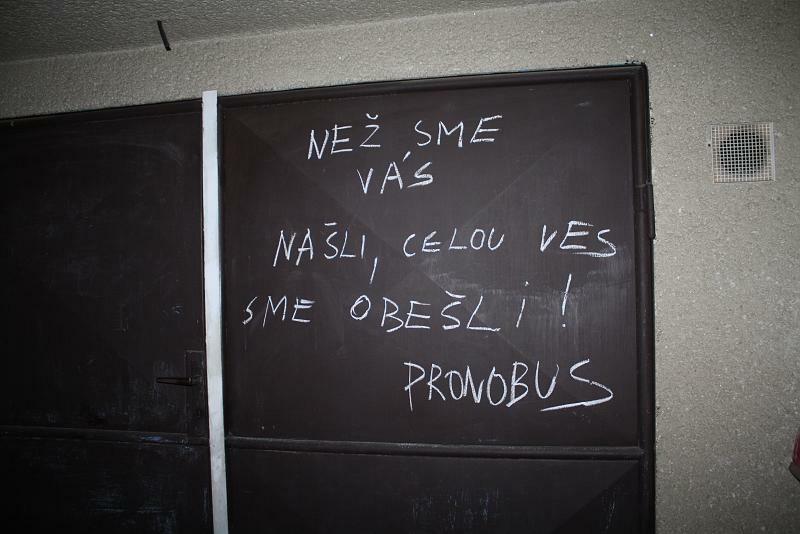 NEŽ SME
VÁS
NAŠLI, CELOU VES
SME OBEŠLI!
PRONOBUS